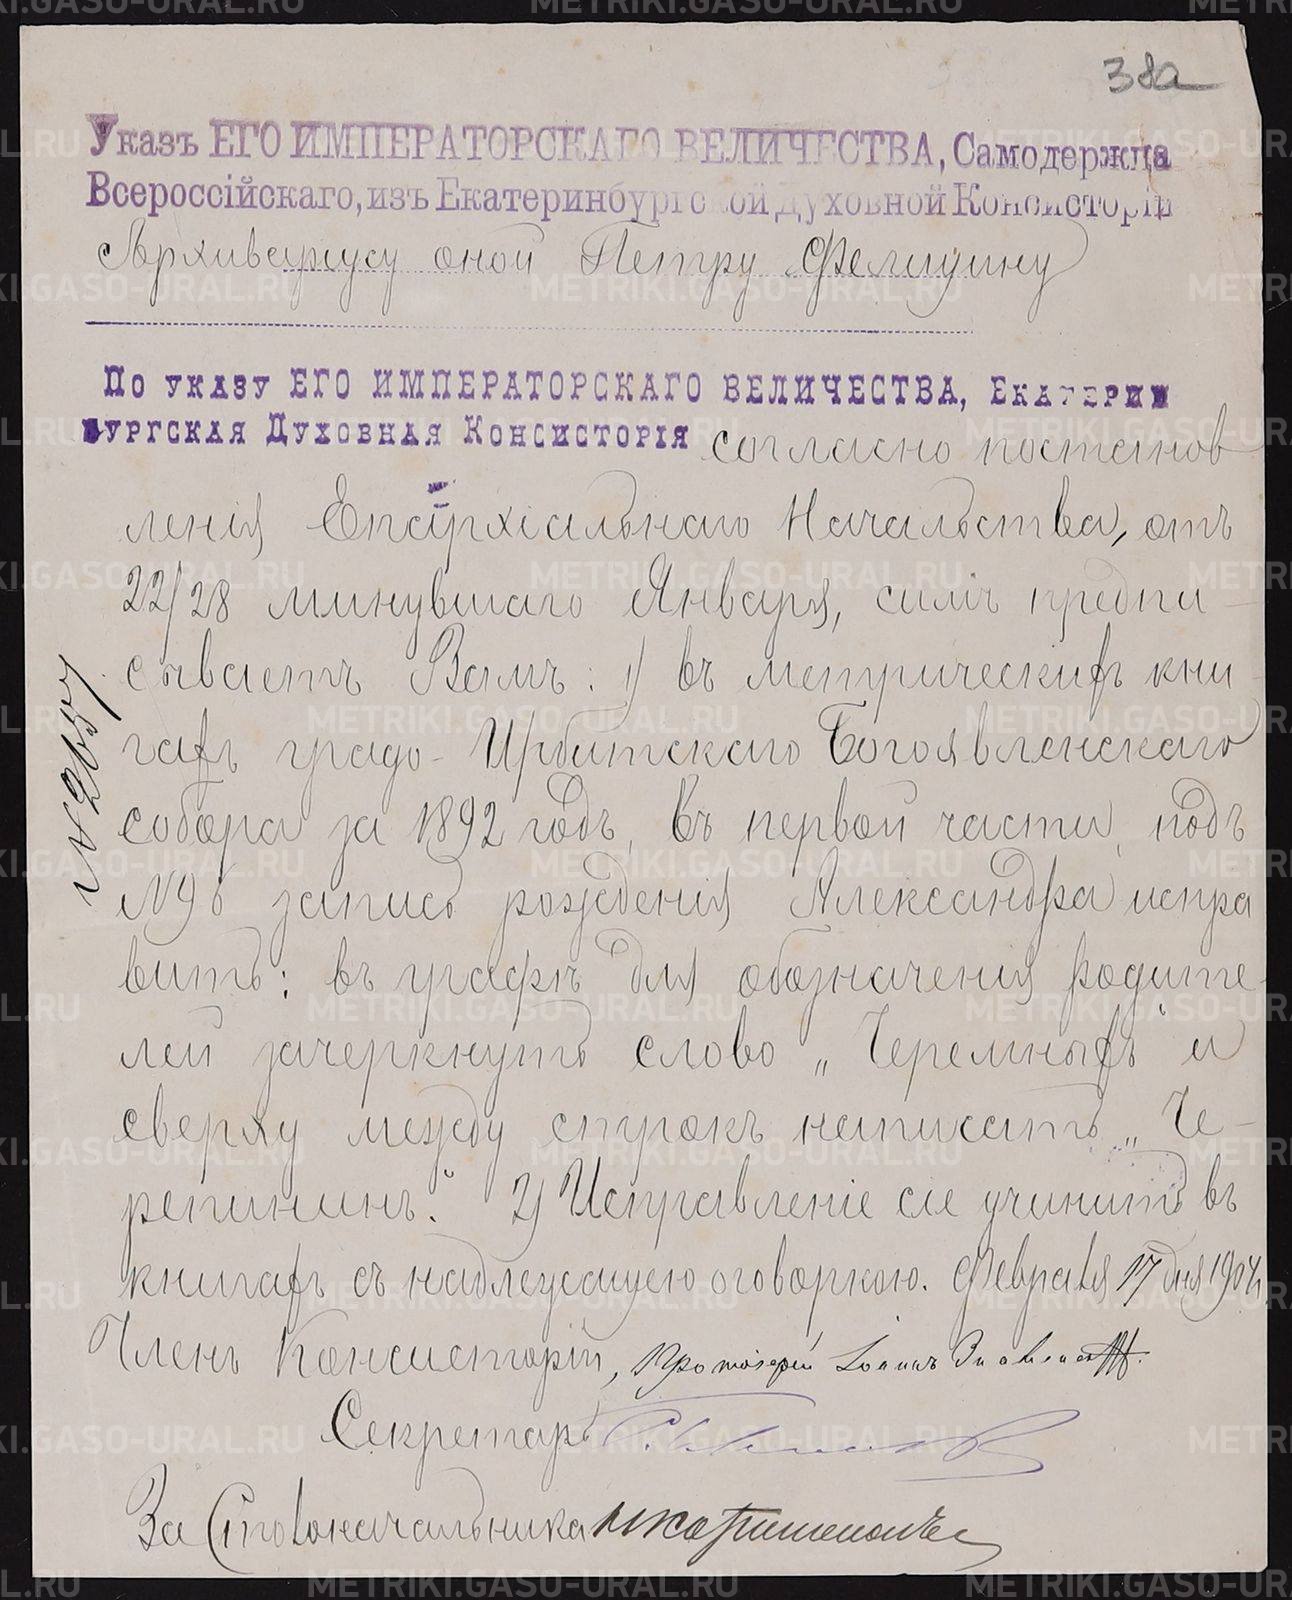 38а
Указъ ЕГО ИМПЕРАТОРСКАГО ВЕЛИЧЕСТВА, Самодержца
Всероссійскаго, изъ Екатеринбургской Духовной Консисторіи
Архиваріусу оной Петру Фелицину
По указу ЕГО ИМПЕРАТОРСКАГО ВЕЛИЧЕСТВА, Екатерин
бургская Духовная Консисторія согласно постанов
ленія Епархіальнаго Начальства, отъ
22/28 минувшаго Января, симъ предпи-
сываетъ Вамъ: 1) въ метрическихъ кни-
гахъ градо-Ирбитскаго Богоявленскаго
собора за 1892 годъ, въ первой части, подъ
запись рожденія Александра испра
вить: въ графѣ для обозначенія родите-
лей зачеркнуть слово „Черемныхъ" и
сверху между строкъ написать „Че-
репининъ." 2) Исправленіе сіе учинить въ
книгахъ съ надлежащею оговоркою. Февраля 17 дня 1904
Членъ Консисторіи, Протоіерей Іоаннъ
Секретарь
За Столоначальника
METRIKI.GASO-URAL.RU